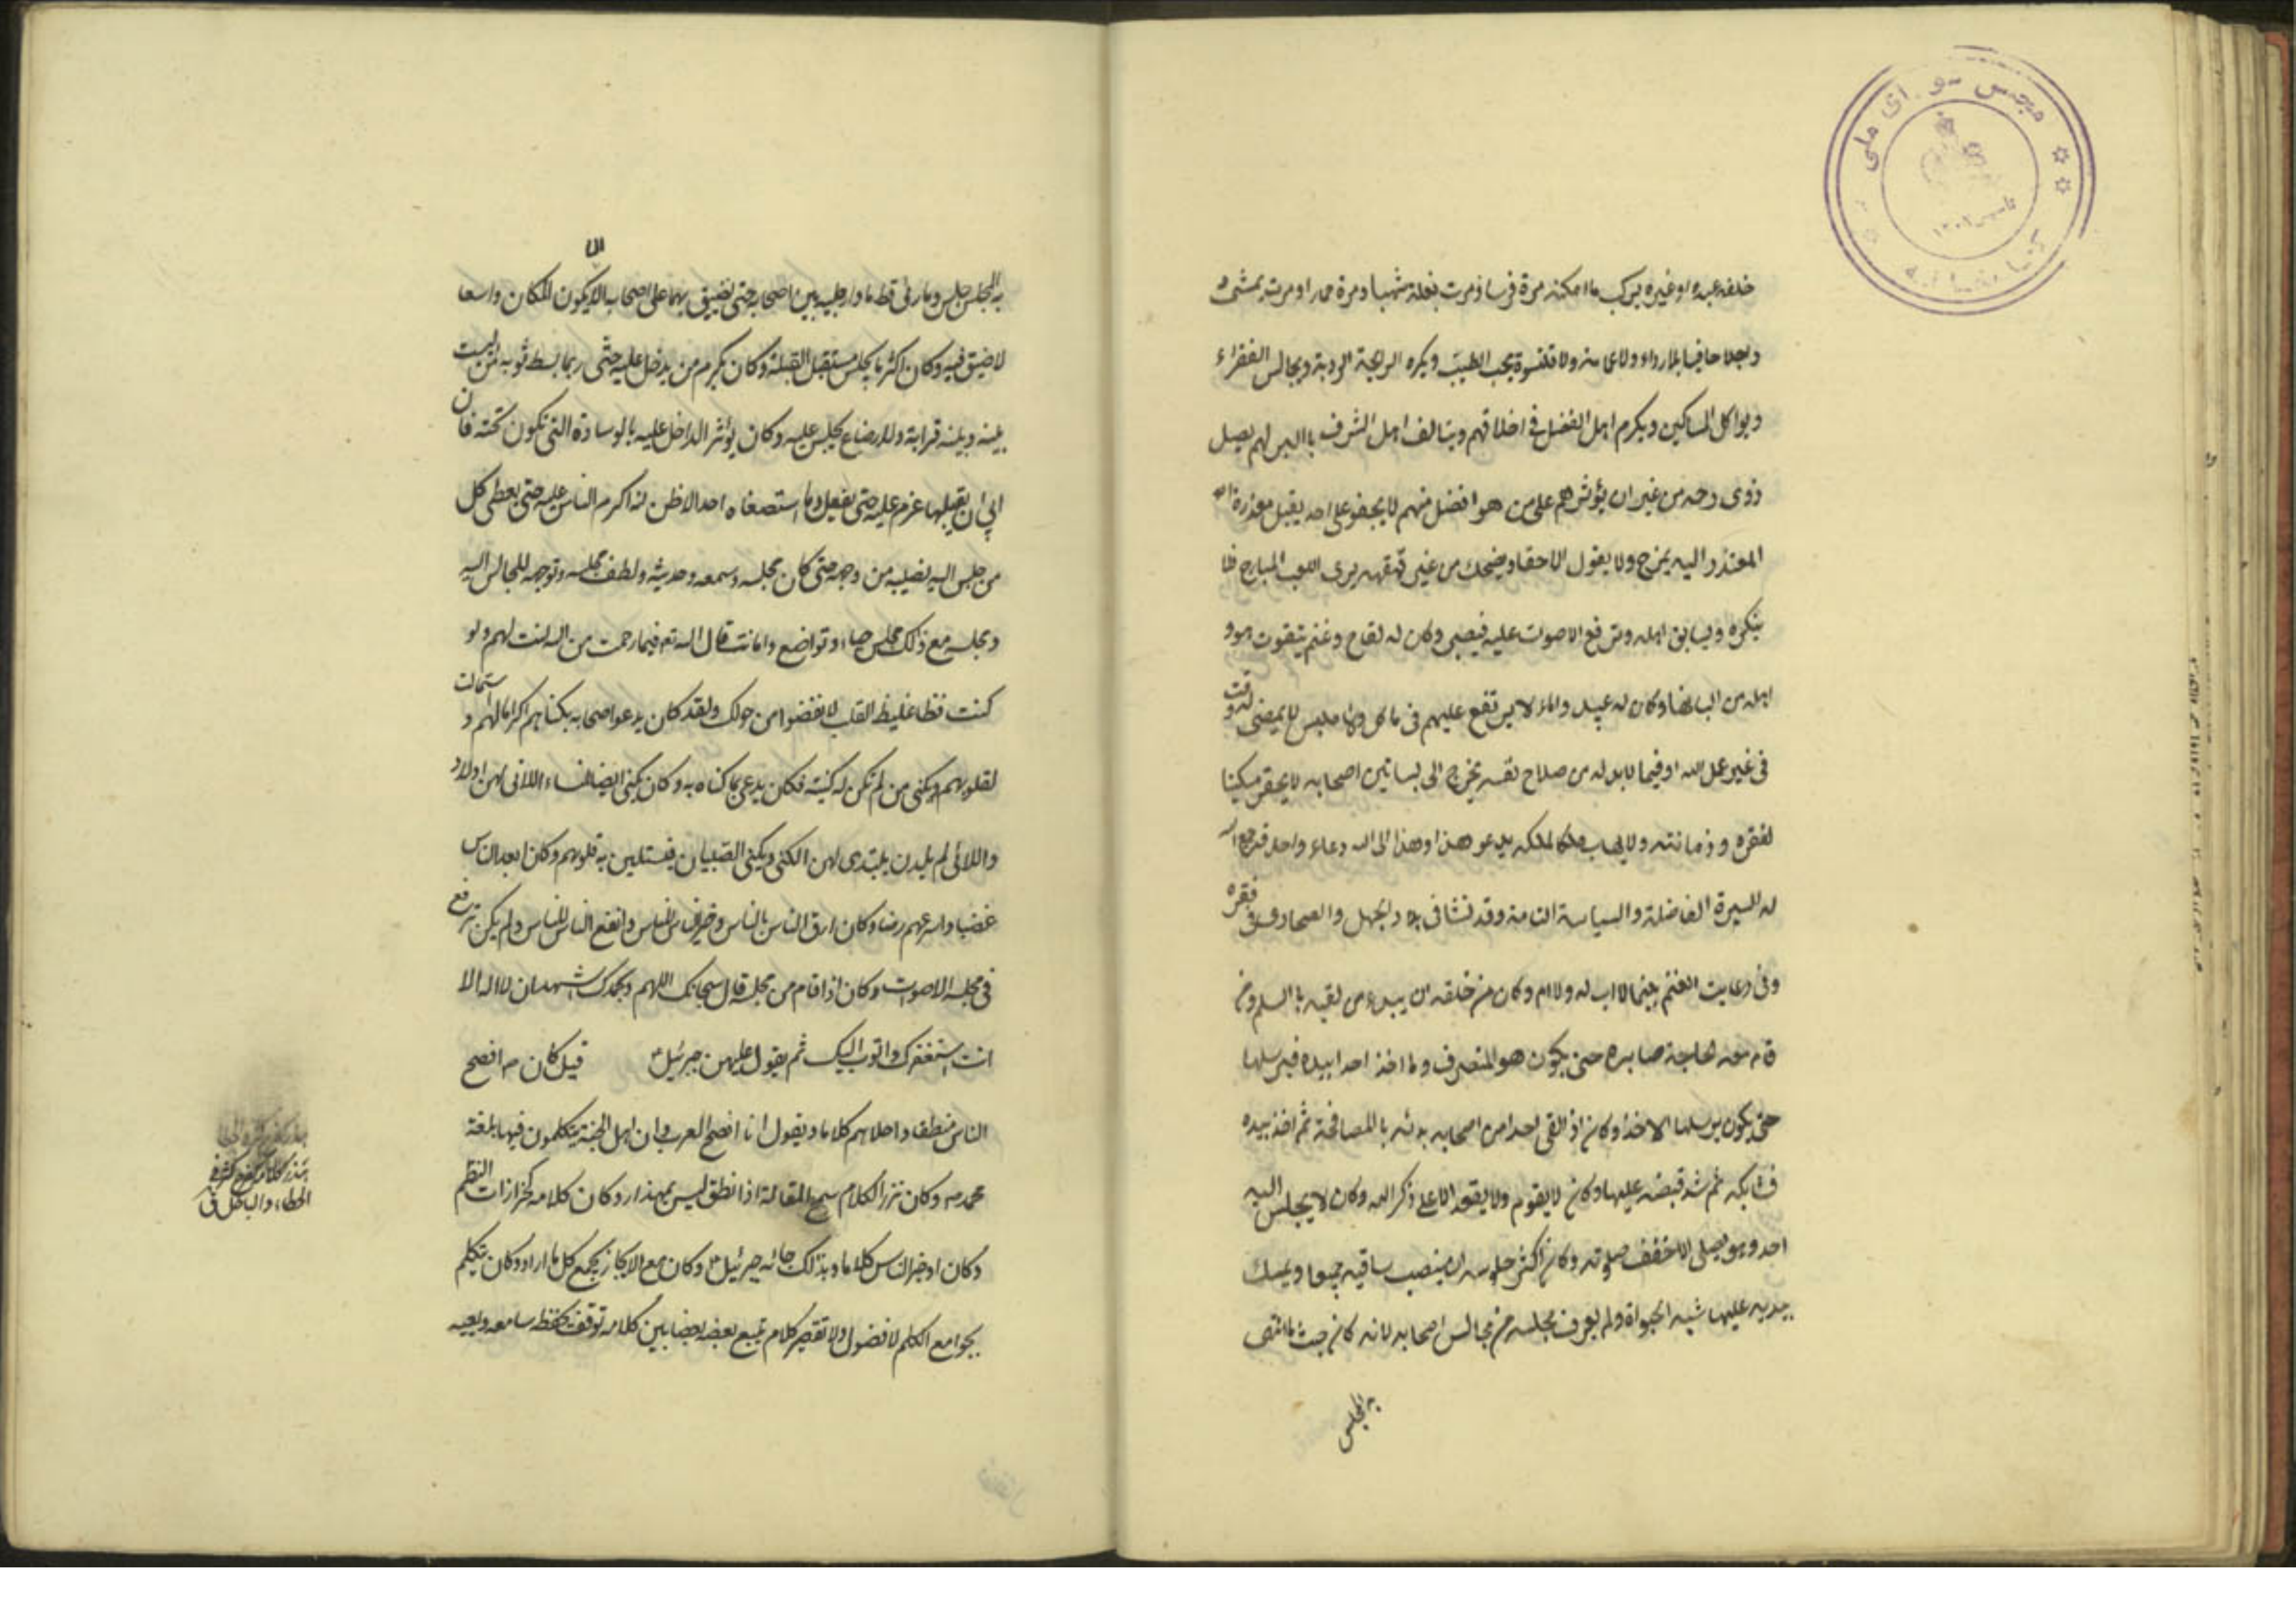 مجلس شورای ملی
کتابخانه
تاسیس ۱۳۰۲
خلفه عبده او غیره یرکب ما امکنه مرة فرسا و مرت بغلة شهبا و مرة حمارا و مرت یمشی
راجلا حافیا بلا رداء ولا عمامته ولا قلنسوة یحب الطیب ویکره الرایحة الردیة ویجالس الفقراء
ویواکل المساکین ویکرم اهل الفضل فی اخلاقهم ویتالف اهل الشرف باالبر لهم یصل
ذوی رحمه من غیر ان یؤثرهم علی من هو افضل منهم لا یجفو علی احد یقبل معذرة
المعتذر الیه یمزح ولا یقول الا حقا ویضحک من غیر قهقهه یری اللعب المباح فلا
ینکره ویسابق اهله وترفع الاصوات علیه فیصبر وکان له لقاح وغنم یتقوت هو و
اهله من البانها وکان له عبید واماء لا یرتفع علیهم فی ماکل ولا ملبس لا یمضی له وقت
فی غیر عمل لله او فیما لابد له من صلاح نفسه یخرج الی بساتین اصحابه لا یحقر مسکینا
لفقره وزمانته ولا یهاب ملکا لملکه یدعو هذا وهذا الی الله دعاء واحد قد جمع الله
له السیرة الفاضلة والسیاسة التامة وقد نشا فی بلاد الجهل والصحاری فی فقره
وفی رعایت الغنم یتیما لا اب له ولا ام وکان من خلقه ان یبدء من لقیه باالسلم ومن
قام معه لحاجة صابره حتی یکون هو المنصرف وما اخذ احد ابیده فیرسلها
حتی یکون یرسلها الاخذ وکان اذ القی احدا من اصحابه بدئه باالمصافحة ثم اخذ بیده
فشابکه ثم شد قبضه علیها وکان لا یقوم ولا یقعد الا علی ذکر الله وکان لا یجلس الیه
احد وهو یصلی الا خفف صلوته وکان اکثر جلوسه ان ینصب ساقیه جمیعا ویمسک
بیدیه علیها شبه الحبواة ولم یعرف مجلسه من مجالس اصحابه لانه کان حیث ما انتهی
به المجلس
به المجلس جلس وما رئی قط مادا رجلیه بین اصحابه حتی یضیق بهما علی اصحابه الا ان یکون المکان واسعا
لا ضیق فیه وکان اکثر ما یجلس مستقبل القبلة وکان یکرم من یدخل علیه حتی ربما بسط ثوبه لمن لیست
بینه وبینه قرابة ولا رضاع یجلس علیه وکان یؤثر الداخل علیه بالوسادة التی تکون تحته فان
ابی ان یقبلها عزم علیه حتی یفعل وما استصغاه احد الا ظن انه اکرم الناس علیه حتی یعطی کل
من جلس الیه نصیبه من وجهه حتی کان مجلسه وسمعه وحدیثه ولطف مجلسه وتوجهه للجالس الیه
ومجلسه مع ذلک مجلس حیاء وتواضع وامانت قال الله تع فبما رحمت من الله لنت لهم ولو
کنت فظا غلیظ القلب لانفضوا من حولک ولقد کان یدعو اصحابه بکناهم اکراما لهم و استمالت
لقلوبهم ویکنی من لم تکن له کنیته فکان یدعی بما کناه به وکان یکنی ایضا النساء اللاتی لهن اولاد
واللاتی لم یلدن یبتدی لهن الکنی ویکنی الصبیان فیستلین به قلوبهم وکان ابعد الناس
غضبا واسرعهم رضا وکان ارق الناس بالناس وخیر الناس للناس وانفع الناس للناس ولم یکن ترفع
فی مجلسه الاصوات وکان اذا قام من مجلسه قال سبحانک اللهم وبحمدک اشهد ان لا اله الا
انت استغفرک واتوب الیک ثم یقول علمهن جبرئیل قیل کان افصح
الناس منطقا واحلاهم کلاما ویقول انا افصح العرب وان اهل الجنة یتکلمون فیها بلغة
محمد وکان نزر الکلام سمح المقالة اذا نطق لیس بمهذار وکان کلامه کخرزات النظم
وکان اوجز الناس کلاما وبذلک جائه جبرئیل وکان مع الایجاز یجمع کل ما اراد وکان یتکلم
بجوامع الکلم لا فضول ولا تقصیر کلام یتبع بعضه بعضا بین کلامه توقف یحفظه سامعه ویعیه
الخطاء والباطل